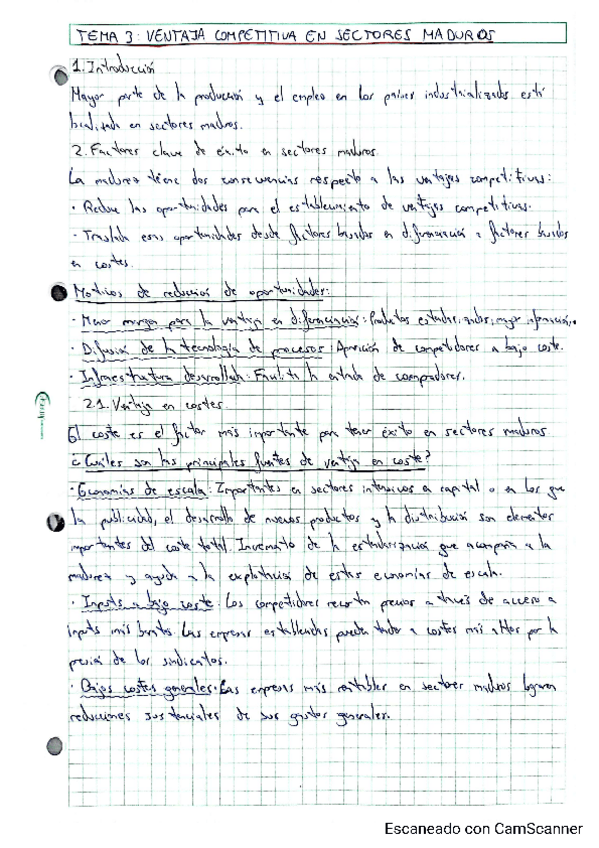 TEMA 3: VENTAJA COMPETITIVA EN SECTORES MADUROS
1. Introducción
Mayor parte de la producción y el empleo en los países industrializados está
localizada en sectores maduros.
2. Factores clave de éxito en sectores maduros.
La madurez tiene dos consecuencias respecto a las ventajas competitivas:
· Reduce las oportunidades para el establecimiento de ventajas competitivas.
· Traslada esas oportunidades desde factores basados en diferenciación a factores basados
en costes.
Motivos de reducción de oportunidades:
· Menor margen para la ventaja en diferenciación: Productos estandarizados, mayor información.
· Difusión de la tecnología de procesos: Aparición de competidores a bajo coste.
· Infraestructura desarrollada: Facilita la entrada de compradores.
2.1. Ventaja en costes.
El coste es el factor más importante para tener éxito en sectores maduros.
¿Cuáles son las principales fuentes de ventaja en coste?
· Economías de escala: Importantes en sectores intensivos en capital o en los que
la publicidad, el desarrollo de nuevos productos y la distribución son elementos
importantes del coste total. Incremento de la estandarización que acompaña a la
madurez y ayuda a la explotación de estas economías de escala.
· Inputs a bajo coste: Los competidores recortan precios a través de acceso a
inputs más baratos. Las empresas establecidas pueden tender a costes más altos por la
presión de los sindicatos.
· Bajos costes generales: Las empresas más rentables en sectores maduros logran
reducciones sustanciales de sus gastos generales.
Escaneado con CamScanner